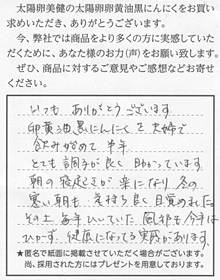 太陽卵美健の太陽卵卵黄油黒にんにくをお買い
求めいただき、ありがとうございます。
今、弊社では商品をより多くの方に実感していた
だくために、あなた様のお力(声)をお願い致します。
ぜひ、商品に対するご意見やご感想などお寄せ
ください。
いつも ありがとうございます
卵黄油黒にんにくを夫婦で
飲み始めて 半年
とても調子が良く 助かっています。
朝の寝起きが 楽になり 冬の
寒い朝も 気持ち良く目覚めれた。
その上 毎年ひいていた 風邪も今年は
ひかず、健康になってる実感があります。
★匿名で紙面に掲載させていただく場合がございます。
尚、採用された方にはプレゼントを用意しております。